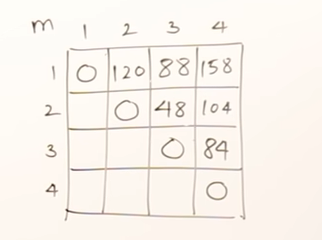 m 1 2 3 4
1 0 120 88 158
2 0 48 104
3 0 84
4 0